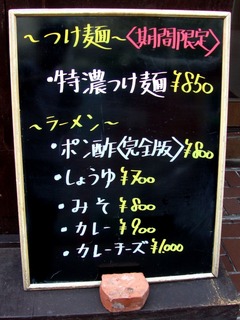 ～つけ麺～〈期間限定〉
・特濃つけ麺 ¥850
～ラーメン～
・ポン酢〈完全版〉¥800
・しょうゆ ¥700
・みそ ¥800
・カレー ¥900
・カレーチーズ ¥1,000